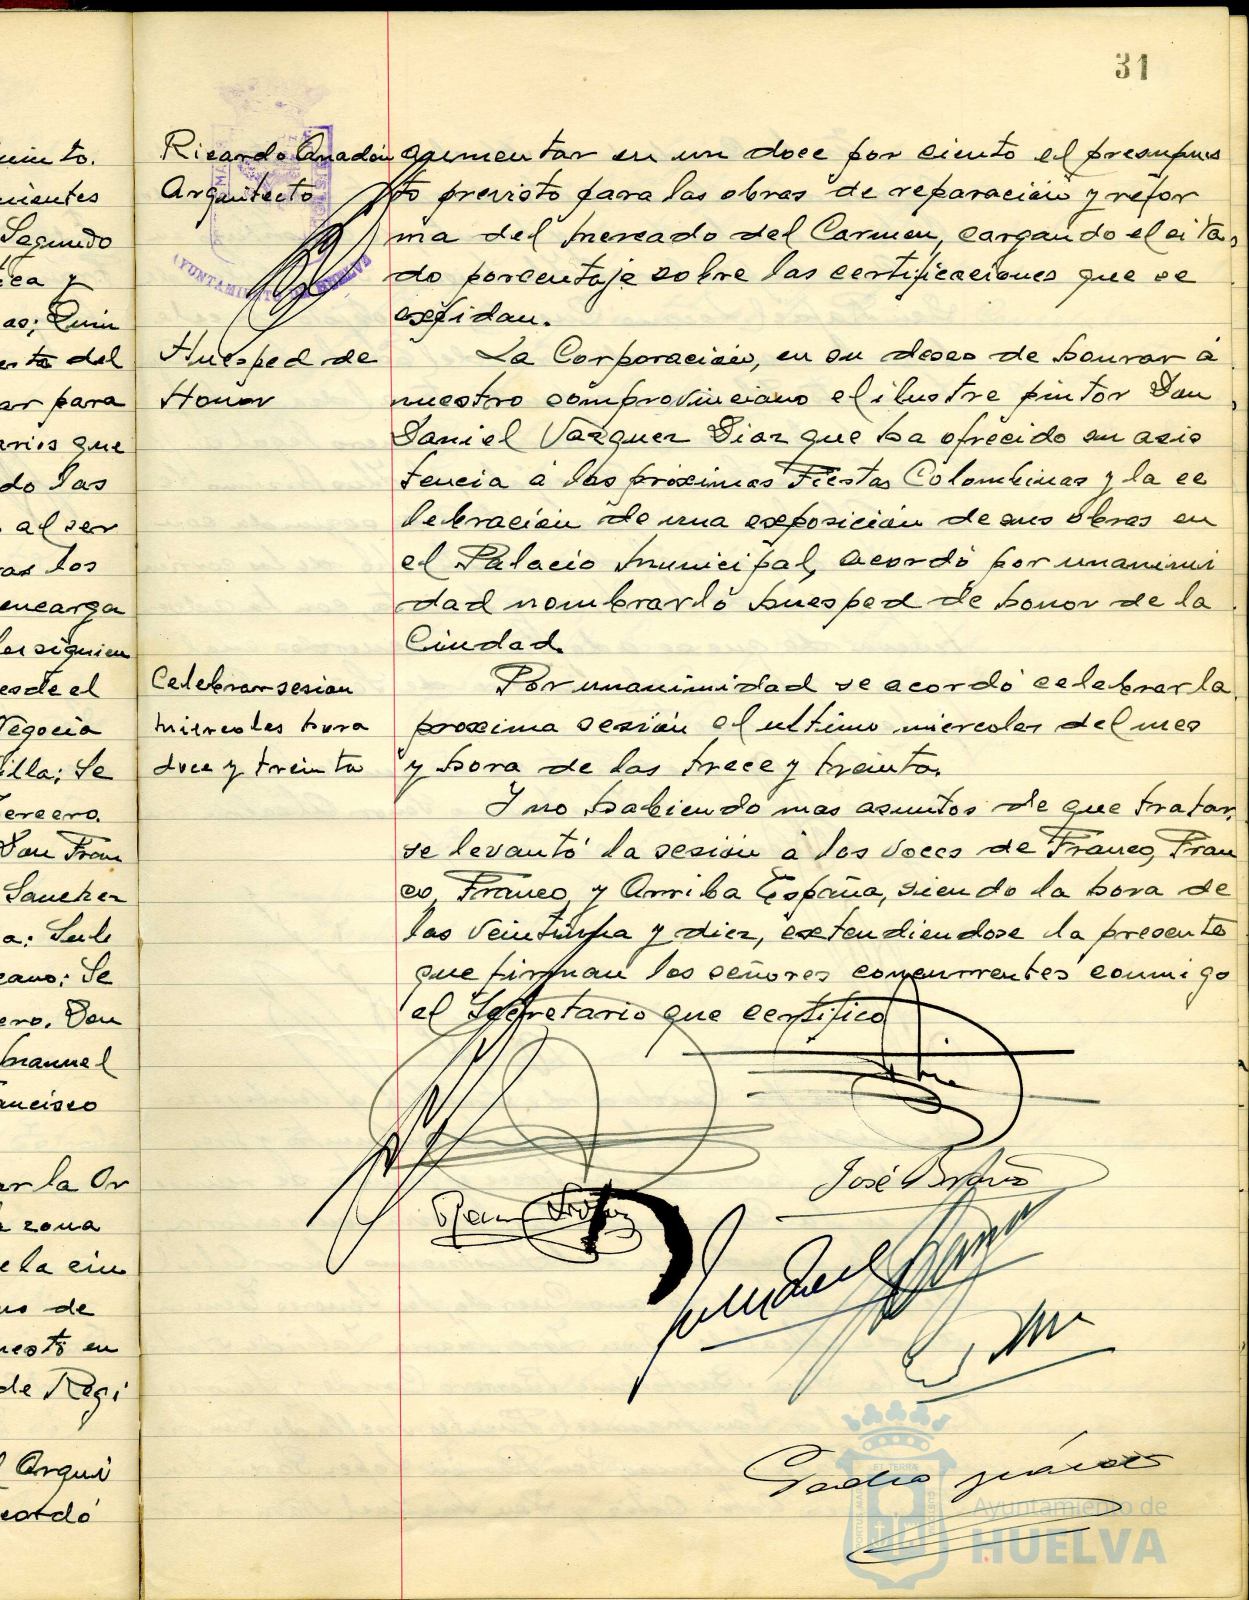 31
uinto.
Ricardo Anadón aumentar en un doce por ciento el presupues
nientes
Arquitecto
to previsto para las obras de reparación y refor
Segundo
ma del Mercado del Carmen, cargando el cita
do porcentaje sobre las certificaciones que se
as; Quin
expidan.
AYUNTAMIENTO DE HUELVA
esta del
Huesped de
La Corporación, en su deseo de honrar á
ar para
Honor
nuestro comprovinciano el ilustre pintor Don
arios que
Daniel Vazquez Diaz que ha ofrecido su asis
do las
tencia á las próximas Fiestas Colombinas y la ce
al ser
lebración de una exposición de sus obras en
las los
el Palacio Municipal, acordó por unanimi
encarga
dad nombrarló huesped de honor de la
les siguien
Ciudad.
esde el
Celebrar sesion
Por unanimidad se acordó celebrar la
Negocia
miercoles hora
proxima sesión el ultimo miercoles del mes
illa; Se
doce y treinta
y hora de las trece y treinta.
ercero.
Y no habiendo mas asuntos de que tratar,
Don Fran
se levantó la sesión á las voces de Franco, Fran
Sanchez
co, Franco, y Arriba España, siendo la hora de
a; Sub
las veintiuna y diez, extendiendose la presente
cano; Se
que firman los señores concurrentes conmigo
ero. Don
el Secretario que certifico
Manuel
ancisco
ar la Or
José
zona
de la ciu
nos de
uesto en
de Regi
Arqui
cordó
Pedro
Ayuntamiento de
HUELVA